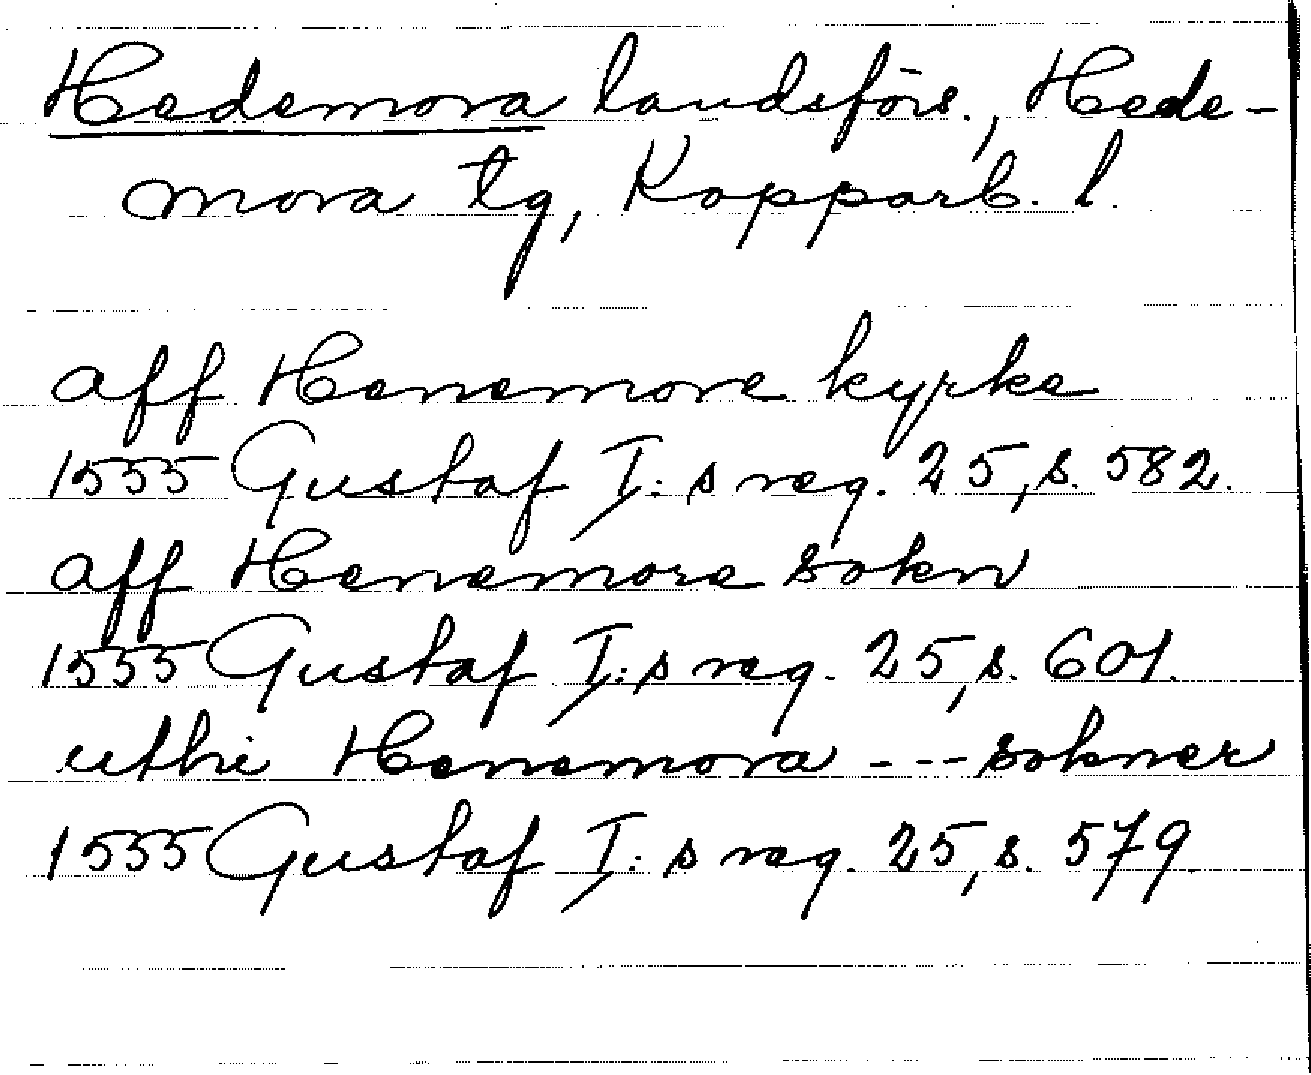 Hedemora landsförs., Hede-
mora tg, Kopparb. l.
aff Henemore kyrke
1555 Gustaf I:s reg. 25, s. 582.
aff Henemore sokn
1555 Gustaf I:s reg. 25, s. 601.
uthi Henemora --- sokner
1555 Gustaf I:s reg. 25, s. 579.